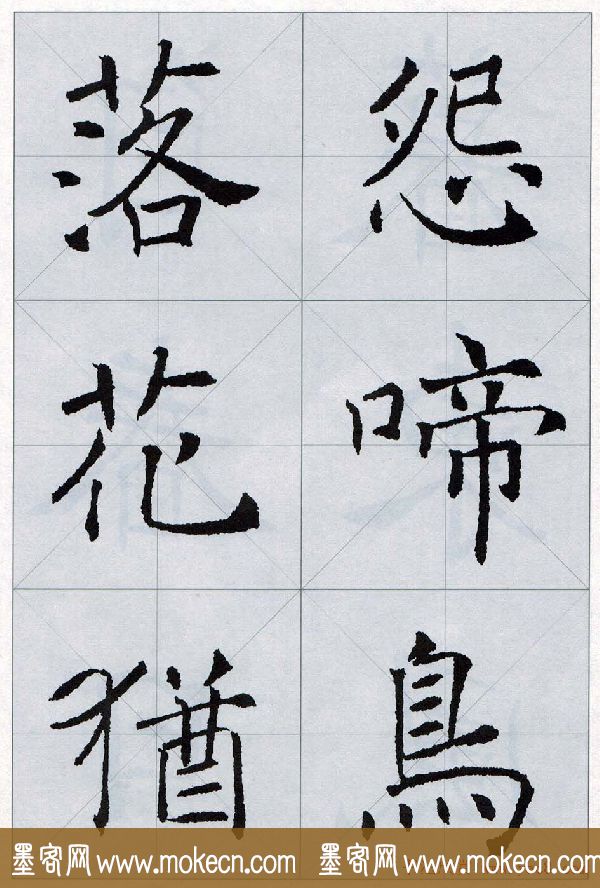 怨啼鳥
落花猶
墨客网 www.mokecn.com 墨客网 www.mokecn.com